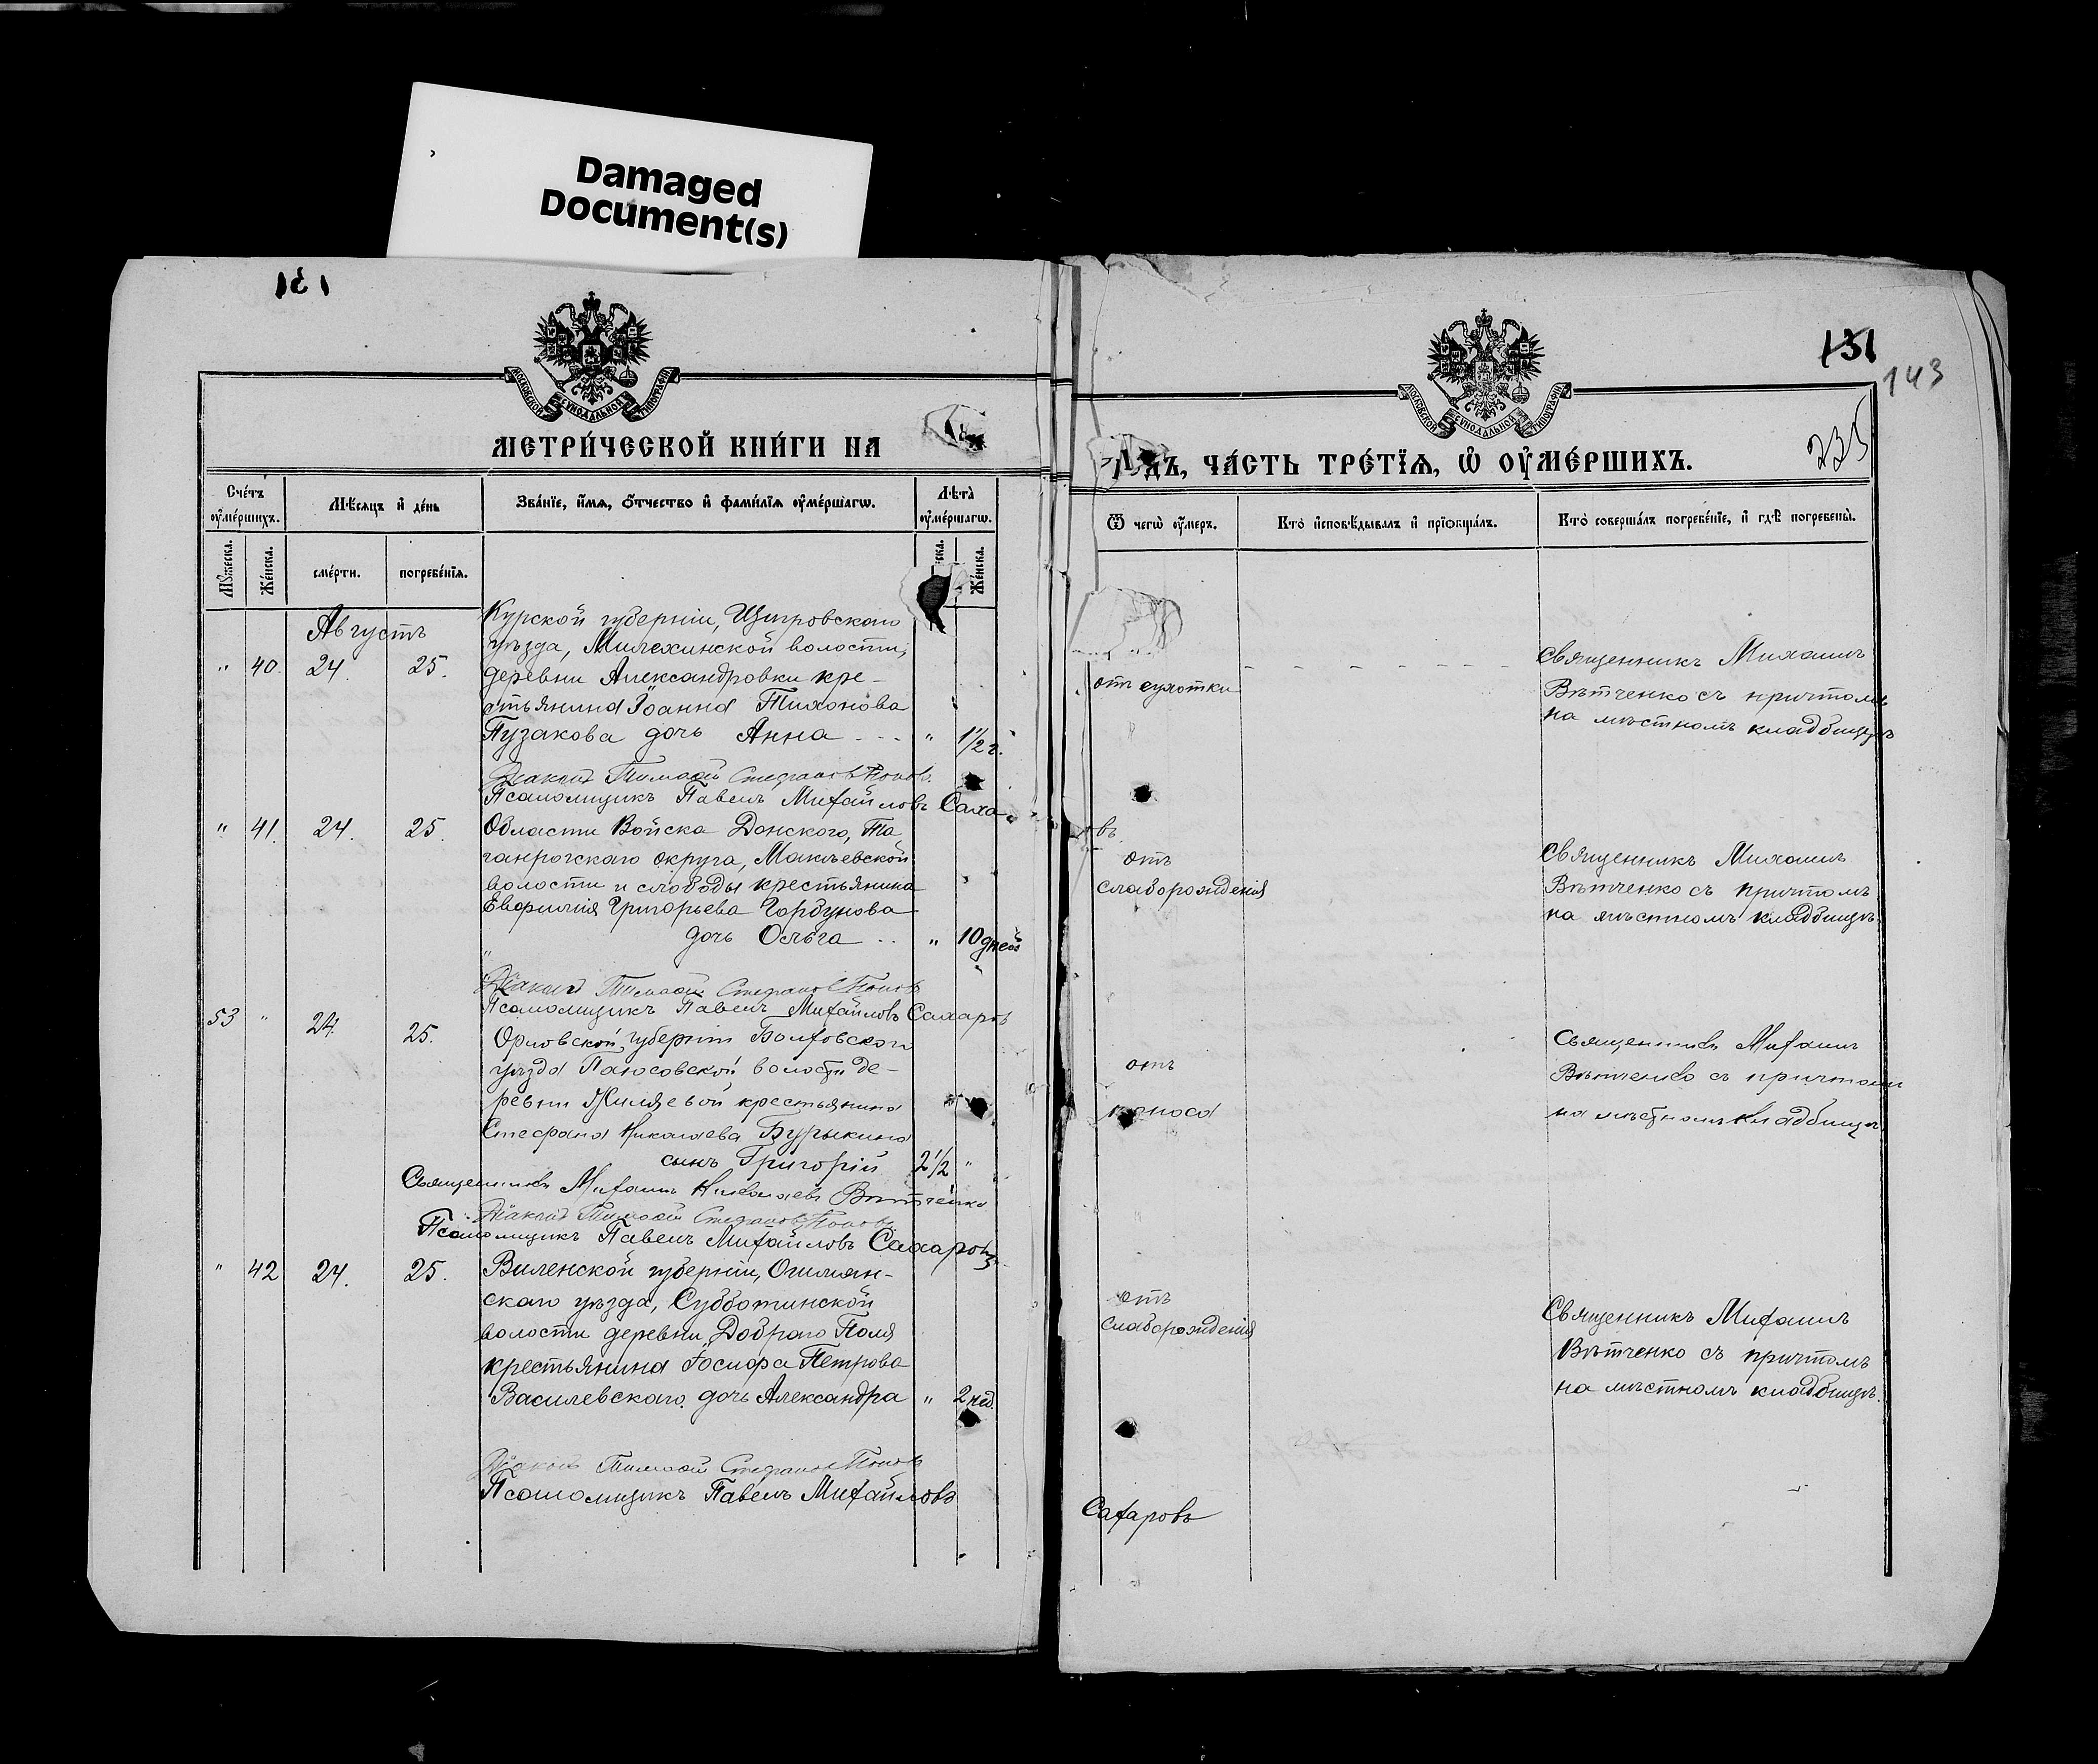 Damaged
Document(s)
131
МЕТРИ́ЧЕСКОЙ КНИ́ГИ НА
Сче́тъ ᲂу҆ме́ршихъ.
Мѣ́сяцъ и҆ де́нь
Зва́нїе, и҆́мѧ, ѻ҆́тчество и҆ фами́лїѧ ᲂу҆ме́ршагѡ.
Лѣта̀ ᲂу҆ме́ршагѡ.
Мꙋ́жеска.
Же́нска.
сме́рти.
погребе́нїѧ.
Же́нска.
Августъ
Курской губерніи, Щигровскаго
уѣзда, Милехинской волости,
" 40. 24. 25. деревни Александровки кре-
стьянина Іоанна Тихонова
Пузакова дочь Анна - - - " 1½ г.
Діаконъ Тимоѳей Стефановъ Поповъ.
Псаломщикъ Павелъ Михайловъ Саха
" 41. 24. 25. Области Войска Донского, Та
ганрогскаго округа, Макѣевской
волости и слободы крестьянина
Евфимія Григорьева Горбунова
дочь Ольга - - " 10 дней
Діаконъ Тимоѳей Стефановъ Поповъ
Псаломщикъ Павелъ Михайловъ Сахаровъ
53 " 24. 25. Орловской губерніи Болховскаго
уѣзда Паюсовской волости де-
ревни Жиляевой крестьянина
Стефана Николаева Бурыкина
сынъ Григорій 2½ "
Священникъ Михаилъ Николаевъ Вѣтченко
Діаконъ Тимоѳей Стефановъ Поповъ
Псаломщикъ Павелъ Михайловъ Сахаровъ
" 42 24. 25. Виленской губерніи, Ошмян-
скаго уѣзда, Субботинской
волости деревни Добраго Поля
крестьянина Іосифа Петрова
Василевскаго дочь Александра " 2 нед.
Діаконъ Тимоѳей Стефановъ Поповъ
Псаломщикъ Павелъ Михайловъ
131
143
235
дъ, ЧА́СТЬ ТРЕ́ТЇѦ, Ѡ҆ ᲂУ҆МЕ́РШИХЪ.
Ѿ чегѡ̀ ᲂу҆́меръ.
Кто̀ и҆сповѣ́дывалъ и҆ прїѡбща́лъ.
Кто̀ соверша́лъ погребе́нїе, и҆ гдѣ̀ погребены̀.
Священникъ Михаилъ
отъ сухотки - - - - - - - Вѣтченко съ причтомъ
на мѣстномъ кладбищѣ
въ
отъ Священникъ Михаилъ
слаборожденія Вѣтченко съ причтомъ
на мѣстномъ кладбищѣ.
Священникъ Михаилъ
отъ Вѣтченко съ причтомъ
поноса на мѣстномъ кладбищѣ
отъ Священникъ Михаилъ
слаборожденія Вѣтченко съ причтомъ
на мѣстномъ кладбищѣ.
Сахаровъ